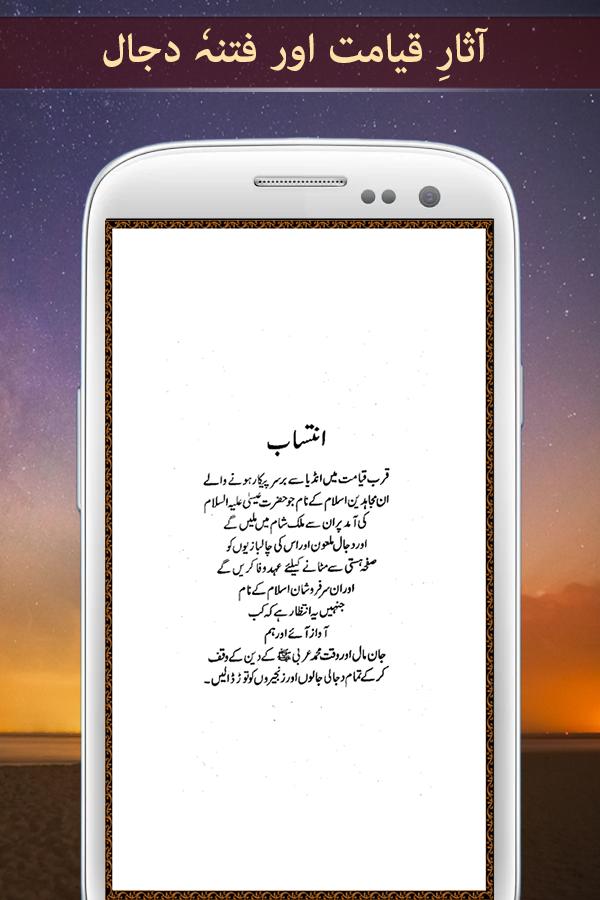 آثارِ قیامت اور فتنۂ دجال
انتساب
قرب قیامت میں انڈیا سے برسرپیکار ہونے والے
ان مجاہدین اسلام کے نام جو حضرت عیسیٰ علیہ السلام
کی آمد پر ان سے ملک شام میں ملیں گے
اور دجال ملعون اور اس کی چالبازیوں کو
صفحہ ہستی سے مٹانے کیلئے عہد وفا کریں گے
اور ان سرفروشان اسلام کے نام
جنہیں یہ انتظار ہے کہ کب
آواز آئے اور ہم
جان مال اور وقت محمد عربی ﷺ کے دین کے وقف
کر کے تمام دجالی جالوں اور زنجیروں کو توڑ ڈالیں۔